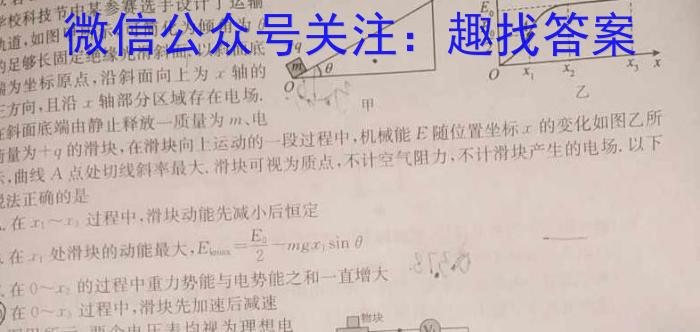 学校科技节中某参赛选手设计了运输
轨道,如图
微信公众号关注：趣找答案
的足够长固定绝缘光滑斜面,以斜面底
端为坐标原点,沿斜面向上为 x 轴的
正方向,且沿 x 轴部分区域存在电场.
在斜面底端由静止释放一质量为 m、电
荷量为+q 的滑块,在滑块向上运动的一段过程中,机械能 E 随位置坐标 x 的变化如图乙所
示,曲线 A 点处切线斜率最大. 滑块可视为质点,不计空气阻力,不计滑块产生的电场. 以下
说法正确的是
q
m
θ
O
甲
E₀
O
x₁
x₂
x₃
x
乙
在 x₁～x₃ 过程中,滑块动能先减小后恒定
在 x₁ 处滑块的动能最大,Eₖₘₐₓ=E₀/2−mgx₁sin θ
在 0～x₂ 的过程中重力势能与电势能之和一直增大
在 0～x₃ 过程中,滑块先加速后减速
两个电压表均视为理想电
物块
V₁